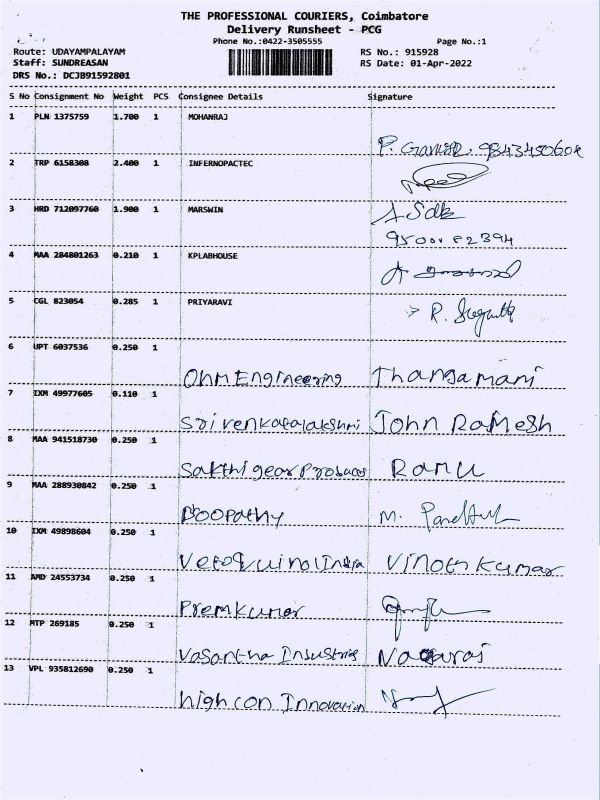 THE PROFESSIONAL COURIERS, Coimbatore
Delivery Runsheet - PCG
Phone No.:0422-3505555 Page No.:1
Route: UDAYAMPALAYAM RS No.: 915928
Staff: SUNDREASAN RS Date: 01-Apr-2022
DRS No.: DCJB91592801
S No Consignment No Weight PCS Consignee Details Signature
1 PLN 1375759 1.700 1 MOHANRAJ
P.
2 TRP 6158308 2.400 1 INFERNOPACTEC
3 HRD 712097760 1.900 1 MARSWIN
95001 82394
4 MAA 284801263 0.210 1 KPLABHOUSE
5 CGL 823054 0.285 1 PRIYARAVI
R.
6 UPT 6037536 0.250 1
Ohm Engineering Thangamani
7 IXM 49977605 0.110 1
Srivenkatalakshmi John Ramesh
8 MAA 941518730 0.250 1
Sakthi gear Ramu
9 MAA 288930842 0.250 1
Boopathy M.
10 IXM 49898604 0.250 1
Vetoquinol India Vinoth Kumar
11 AMD 24553734 0.250 1
Premkumar
12 MTP 269185 0.250 1
Vasantha Industries Nagaraj
13 VPL 935812690 0.250 1
highcon Innovation